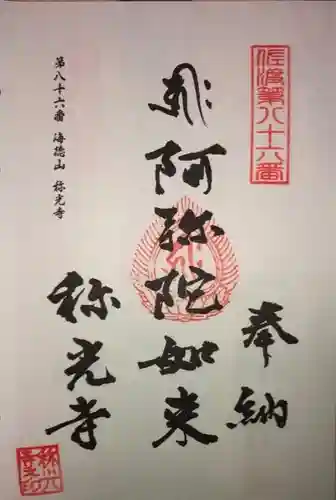 佐渡第八十六番
奉納
阿弥陀如来
称光寺
第八十六番 海徳山 称光寺